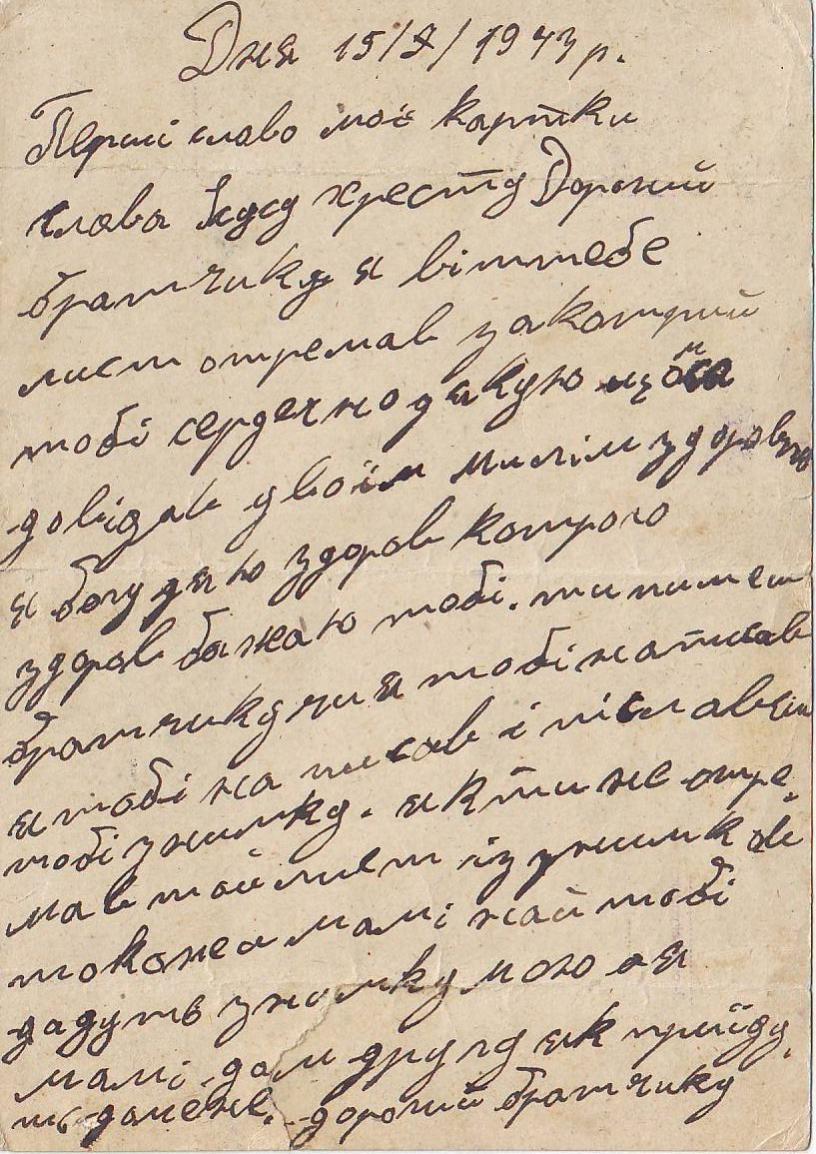 Дня 15/X/1943 р.
Перші слово мої картки
слава Ісусу христу Дорогий
братчику я віттебе
лист отремав закотрий
тобі сердечно дякую що
довідав утвоїм милім здоровлю
я богу дякую здоров котрого
здоров бажаю тобі. ти пишеш
братчику чи я тобі написав
я тобі на писав і післав єм
тобі знимку. як ти не отре.
мав той лист із знимков
то кажи мамі най тобі
дадуть знимку мою а я
мамі дам другу як приїду,
ть домене. дорогий братчику